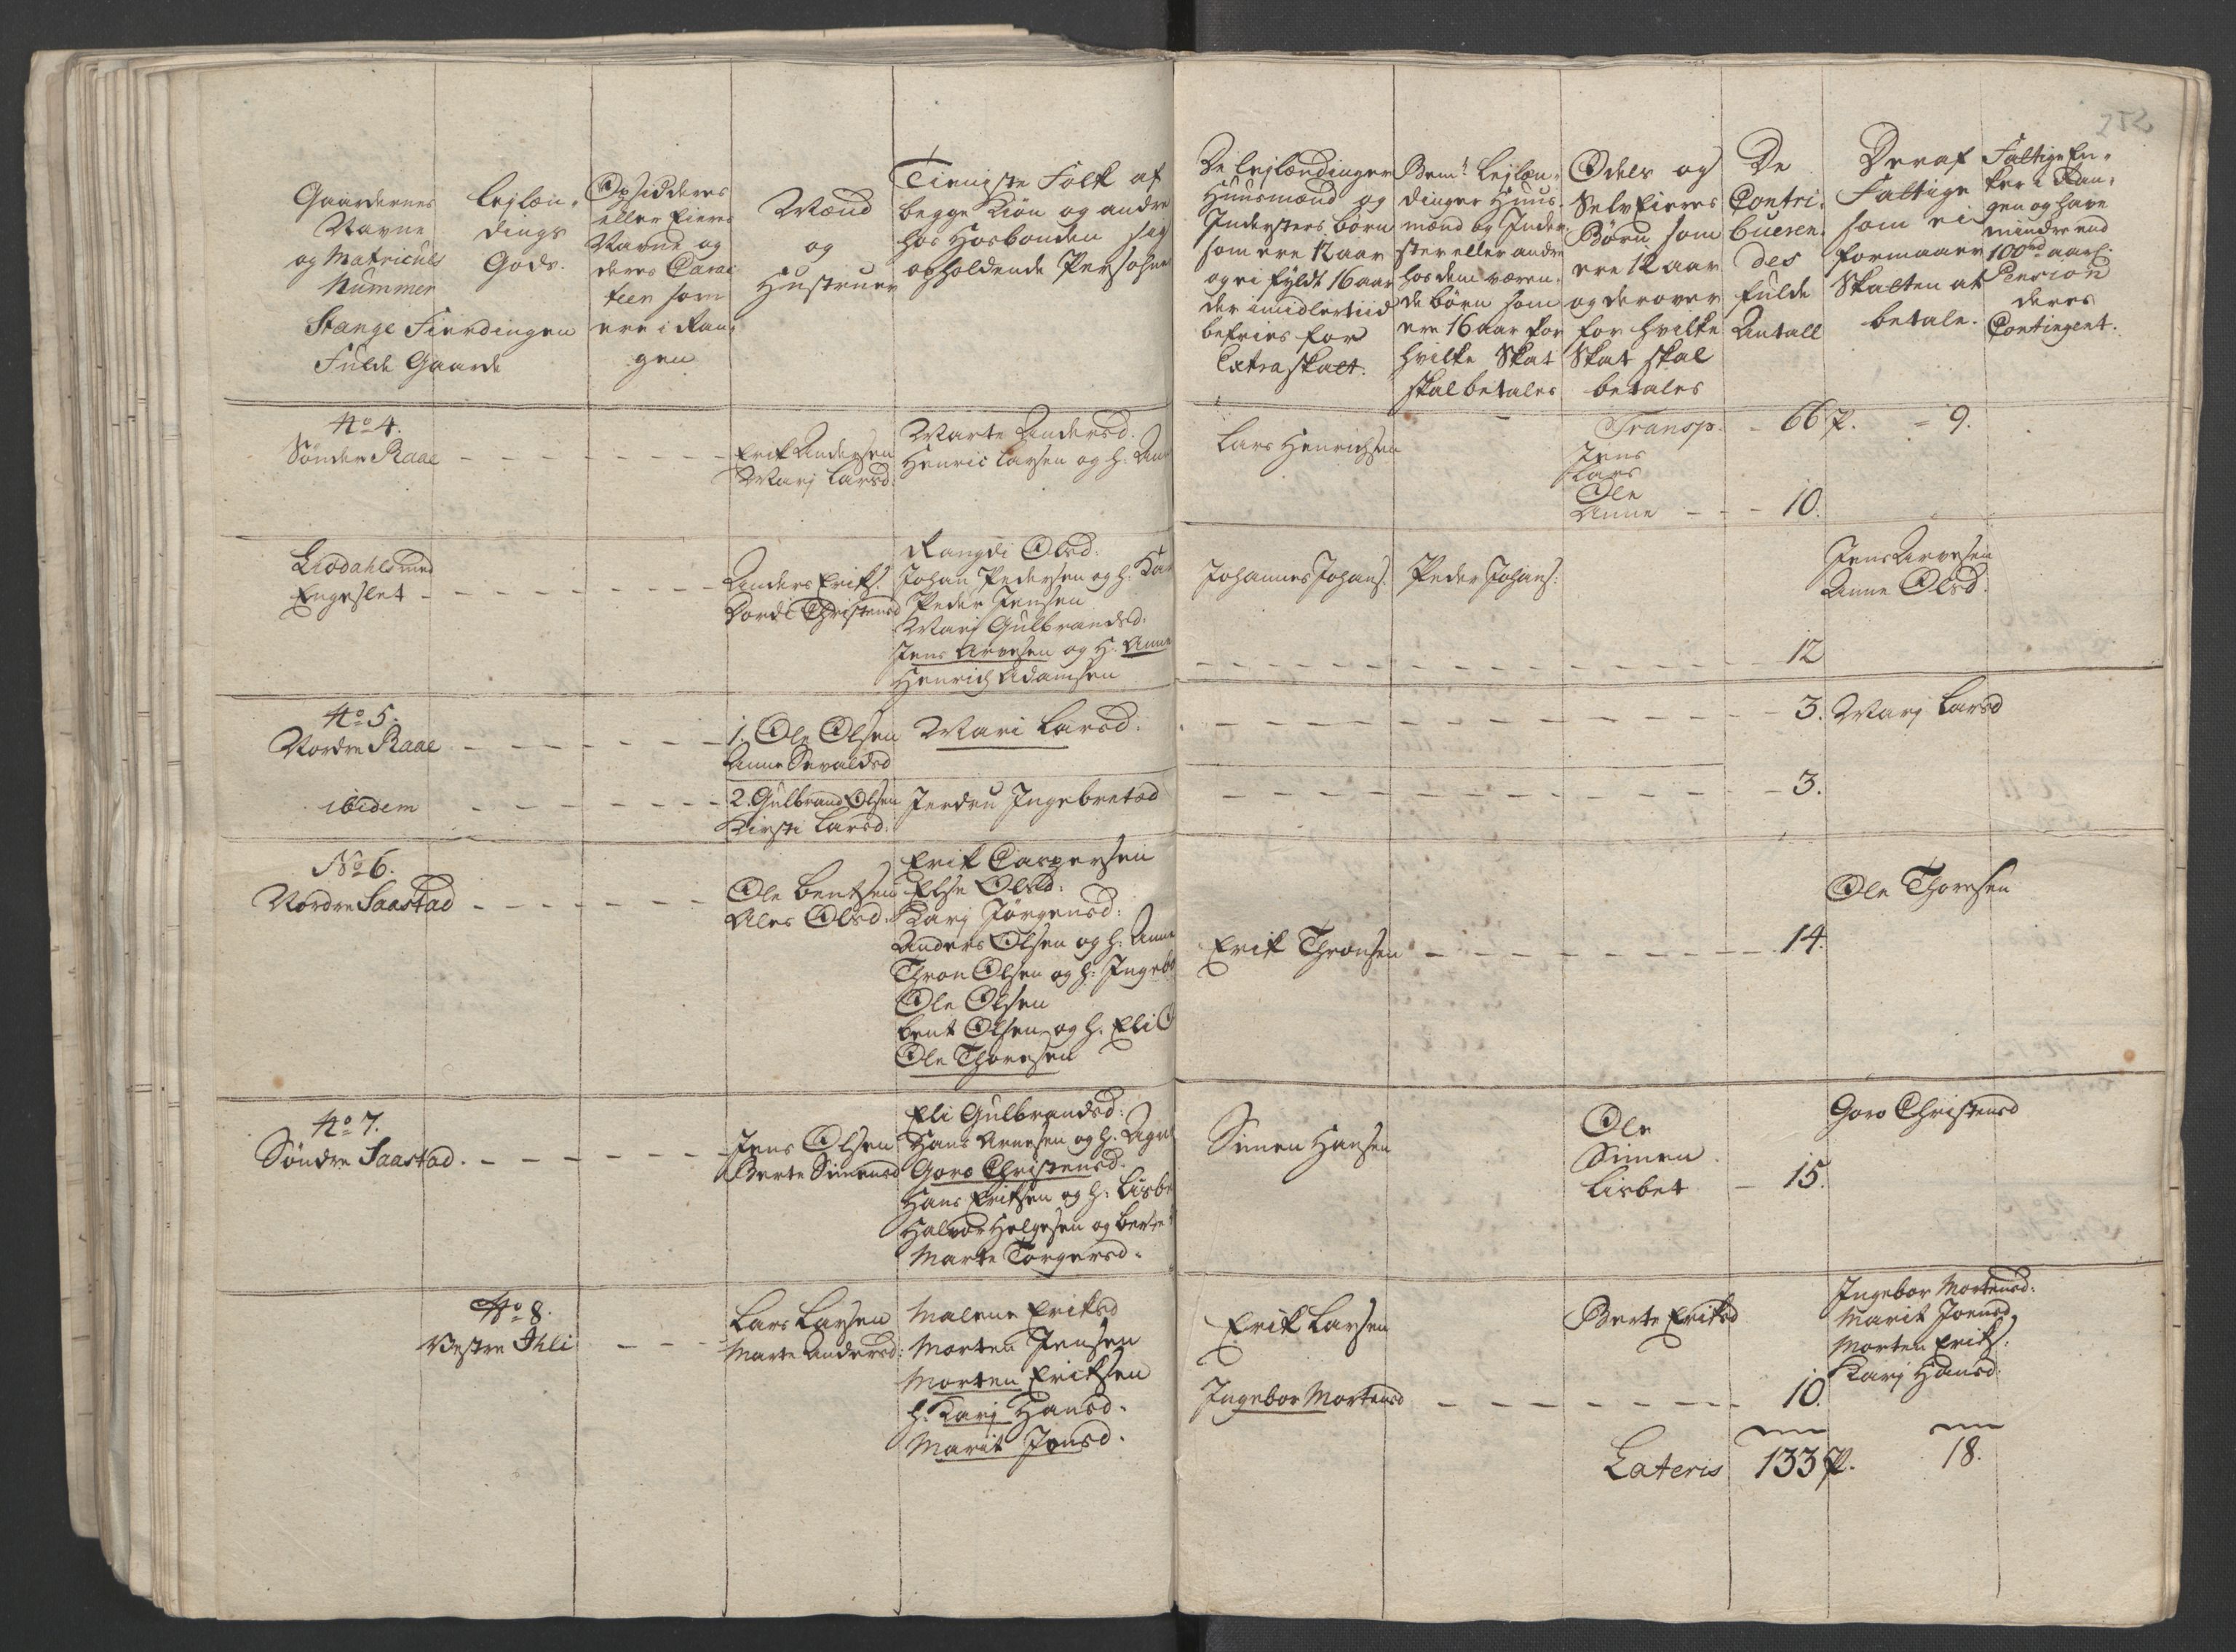 252
Gaardernes
Navne
og Matriculs
Nummer
Stange Fierdingen
Fulde Gaarde
Lejlæn-
dings
Gods.
Opsidderes
eller Eieres
Navne og
deres Carac
teer som
ere i Ran-
gen
Mænd
og
Hustruer
Tieniste Folk af
begge Kiøn og andre
hos Hosbonden sig
opholdende Persohner
De Lejlændinger
Huusmænd og
Inderstes børn
som ere 12 aar
og ei fyldt 16 aar
der imidlertiid
befries for
Extraskatt.
Bemte Lejlæn-
dinger Huus-
mænd og Inder-
ster eller andre
hos dem væren-
de børn som
ere 16 aar for
hvilke Skat
skal betales
Odels og
SelvEieres
Børn som
ere 12 aar
og derover
for hvilke
Skat skal
betales
De
Contri-
bueren-
des
fulde
Antall
Deraf
Fattige
som ei
formaaer
Skatten at
betale.
Fattige En-
ker i Ran-
gen og have
mindre end
100rd aarl.
Pension
deres
Contingent.
No 4.
Sønder Raae
Erik Andersen
Marj Larsd
Marte Andersd.
Henric Larsen og h. Ann
Lars Henrichsen
Transp. 66 P. 9.
Jens
Lars
Ole
Anne 10.
Liødahls med
Engeslet
Anders Eriks.
Dorde Christensd
Rangdi Olsd.
Johan Pedersen og h. Kar
Peder Jensen
Marj Gulbrandsd.
Jens Arvesen og H. Anne
Henrich Adamsen
Johannes Johans.
Peder Johans.
12
Jens Arvesen
Anne Olsd.
No 5.
Nordre Raae
1. Ole Olsen
Anne Sevaldsd
Mari Larsd.
3. Marj Larsd
ibidem
2. Gulbrand Olsen
Kirsti Larsd.
Jendru Ingebretsd
3.
No 6.
Nordre Saastad
Ole Bentsen
Ales Olsd.
Erik Caspersen
Else Olsd.
Karj Jørgensd.
Anders Olsen og h. Anne
Thron Olsen og h. Ingeb
Ole Olsen
Bent Olsen og h. Eli O
Ole Thoresen
Erik Thronsen
14.
Ole Thoresen
No 7.
Søndre Saastad.
Jens Olsen
Berte Simensd
Eli Gulbrandsd.
Hans Arnesen og h. Agn
Goro Christensd.
Hans Eriksen og h. Lisbe
Halvor Helgesen og Berte
Marte Torgersd.
Simen Hansen
Ole
Simen
Lisbet 15.
Goro Christensd
No 8.
Vestre Ihli
Lars Larsen
Marte Andersd.
Malene Eriksd
Morten Jensen
Morten Eriksen
h. Karj Hansd.
Marit Jonsd.
Erik Larsen
Ingebor Mortensd
Berte Eriksd
10.
Ingebor Mortensd.
Marit Joensd
Morten Eriks.
Karj Hansd.
Lateris 133 P. 18.